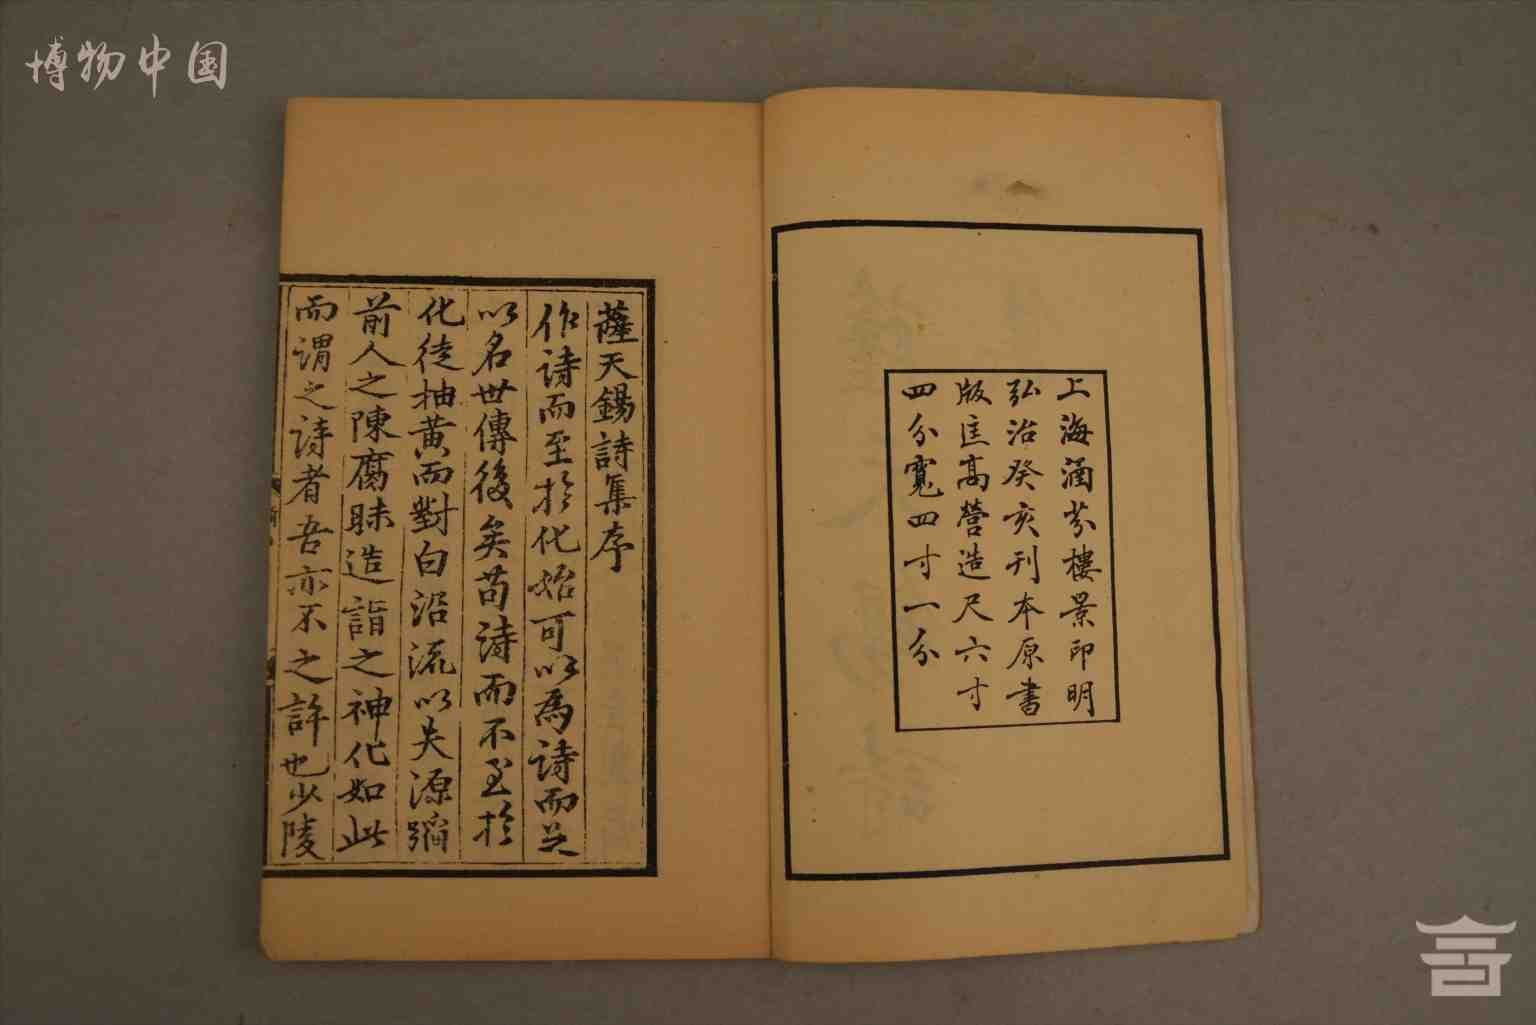 博物中国
上海涵芬樓景印明
弘治癸亥刊本原書
版匡高營造尺六寸
四分寬四寸一分
薩天錫詩集序
作詩而至於化始可以為詩而足
以名世傳後矣苟詩而不至於
化徒抽黃而對白沿流以失源蹈
前人之陳腐昧造詣之神化如此
而謂之詩者吾亦不之許也少陵